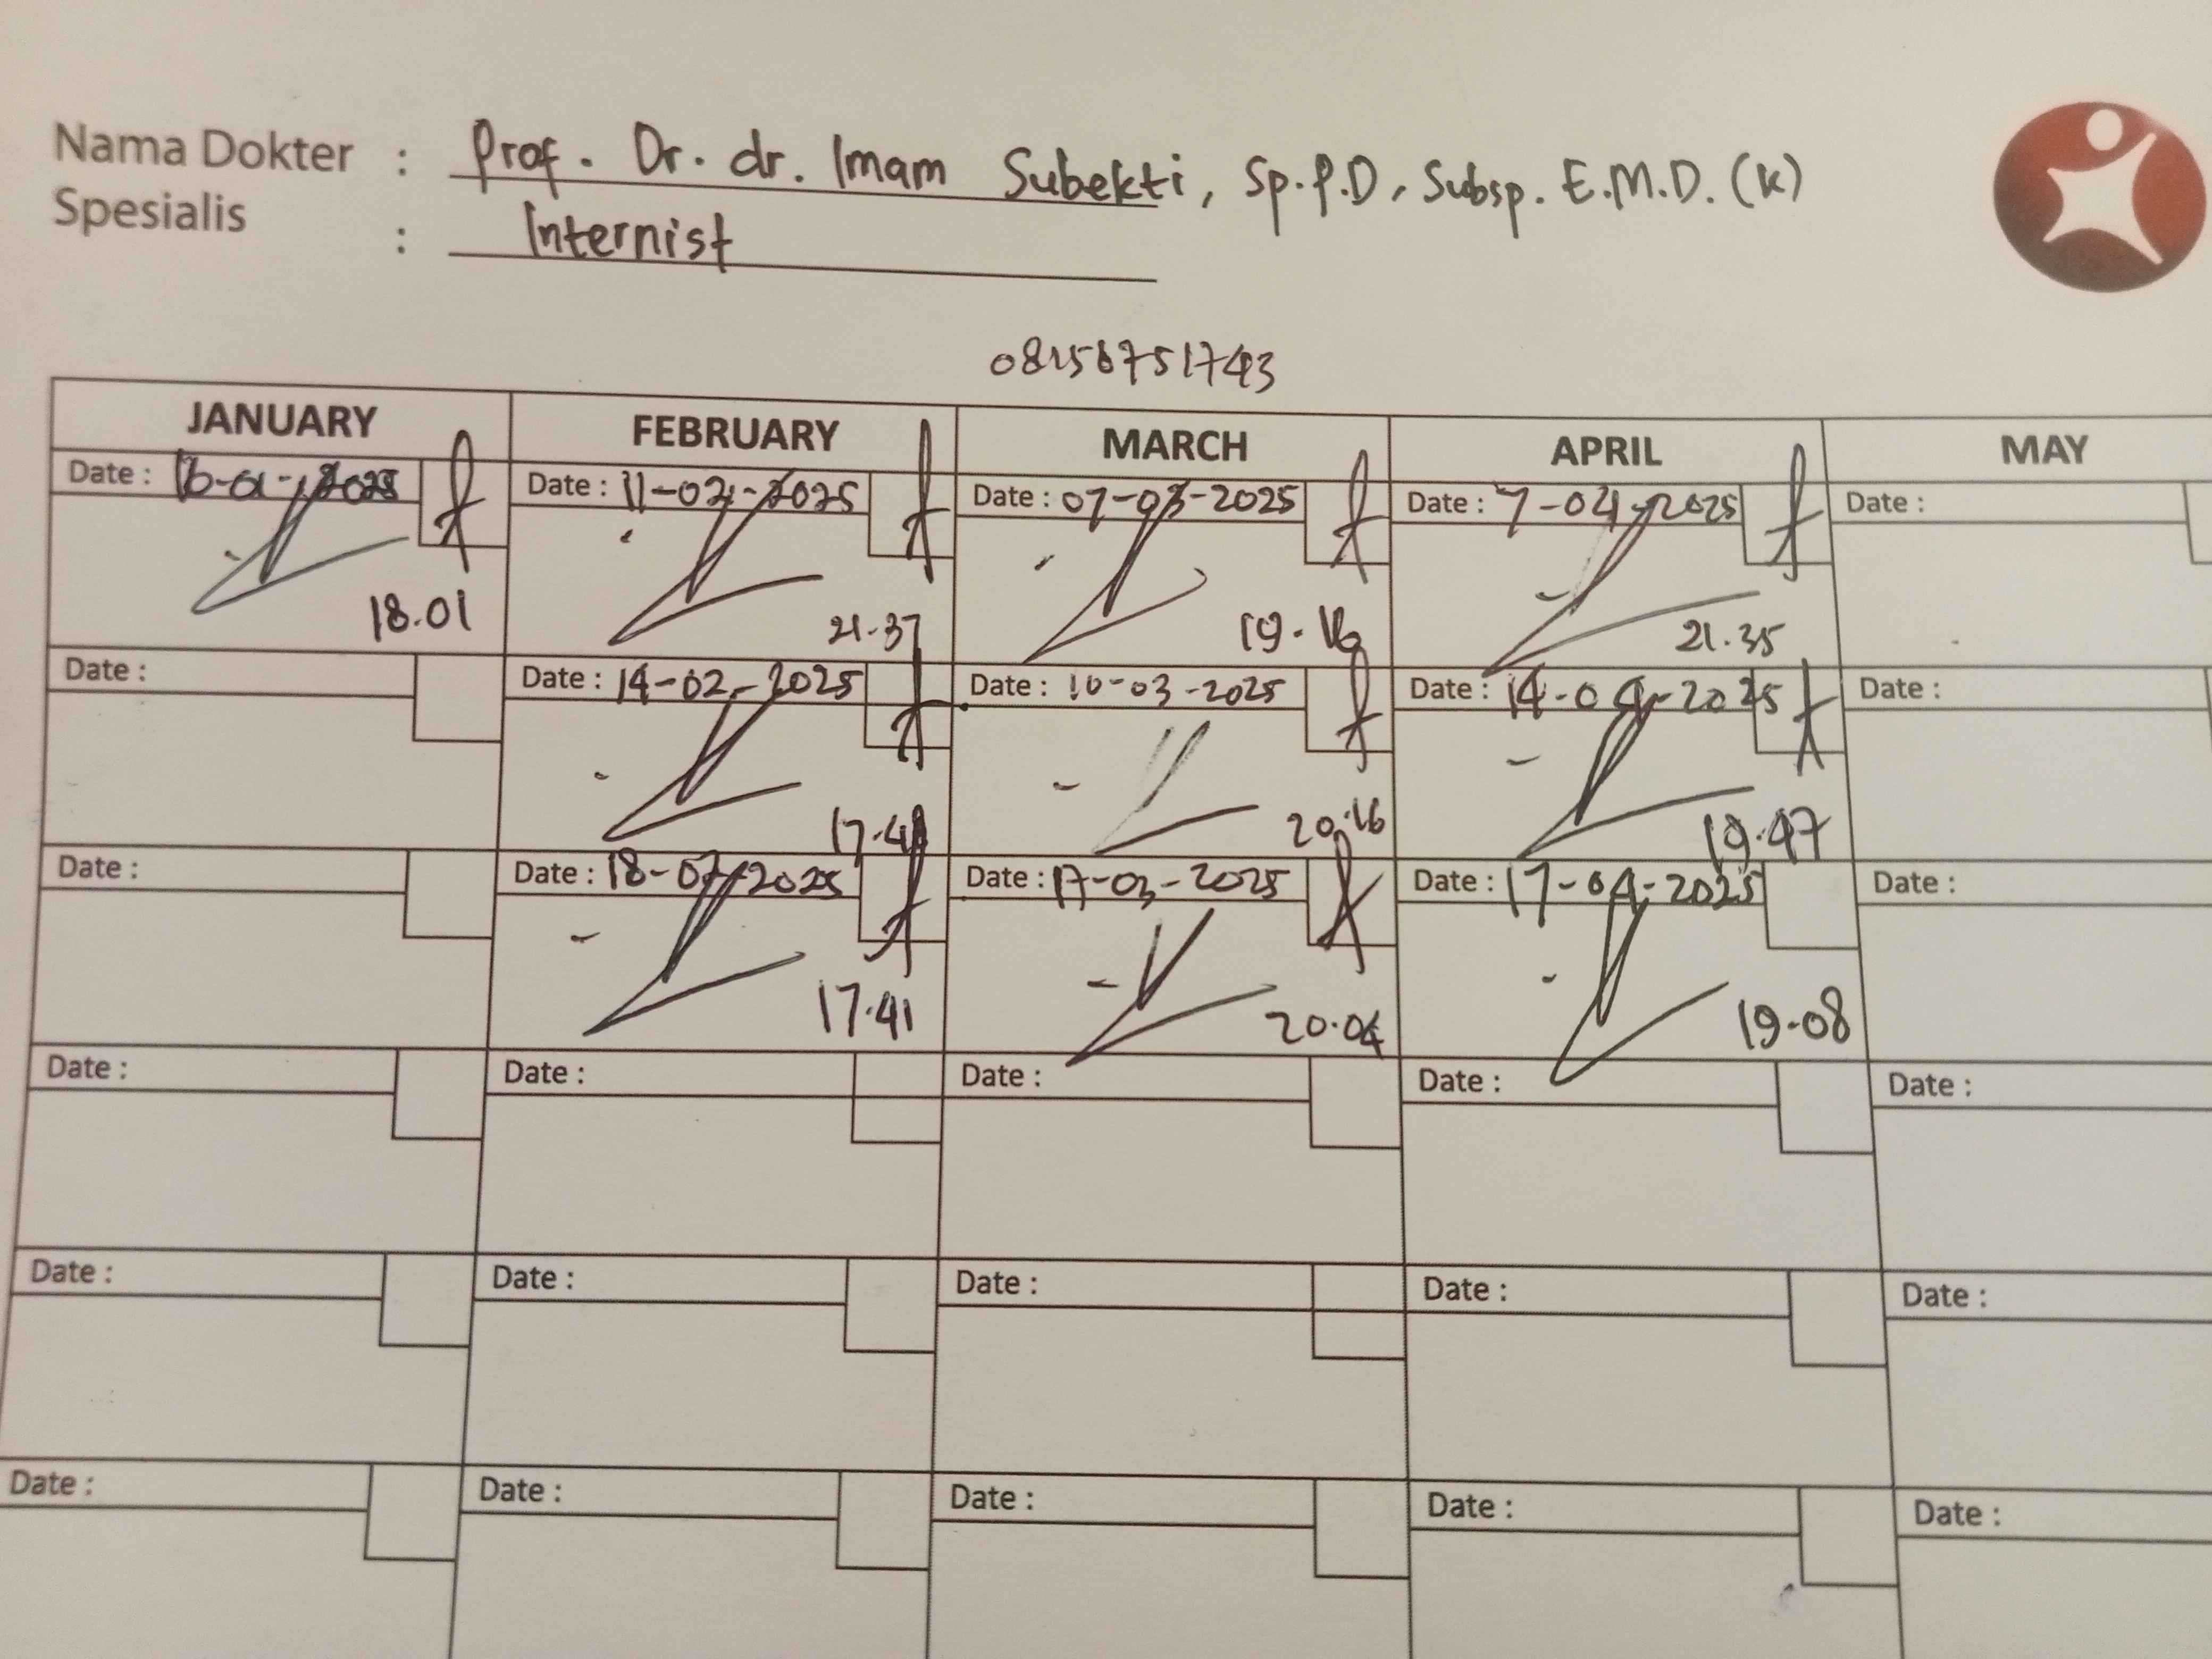 Nama Dokter : Prof. Dr. dr. Imam Subekti, Sp.P.D, Subsp. E.M.D. (K)
Spesialis : Internist
JANUARY FEBRUARY MARCH APRIL MAY
Date : 16-01-2025 Date : 11-02-2025 Date : 07-03-2025 Date : 7-04-2025 Date :
18.01 21.37 19.16 21.35
Date : Date : 14-02-2025 Date : 10-03-2025 Date : 14-04-2025 Date :
17.41 20.16 19.47
Date : Date : 18-02-2025 Date : 17-03-2025 Date : 17-04-2025 Date :
17.41 20.04 19.08
Date : Date : Date : Date : Date :
Date : Date : Date : Date : Date :
Date : Date : Date : Date : Date :